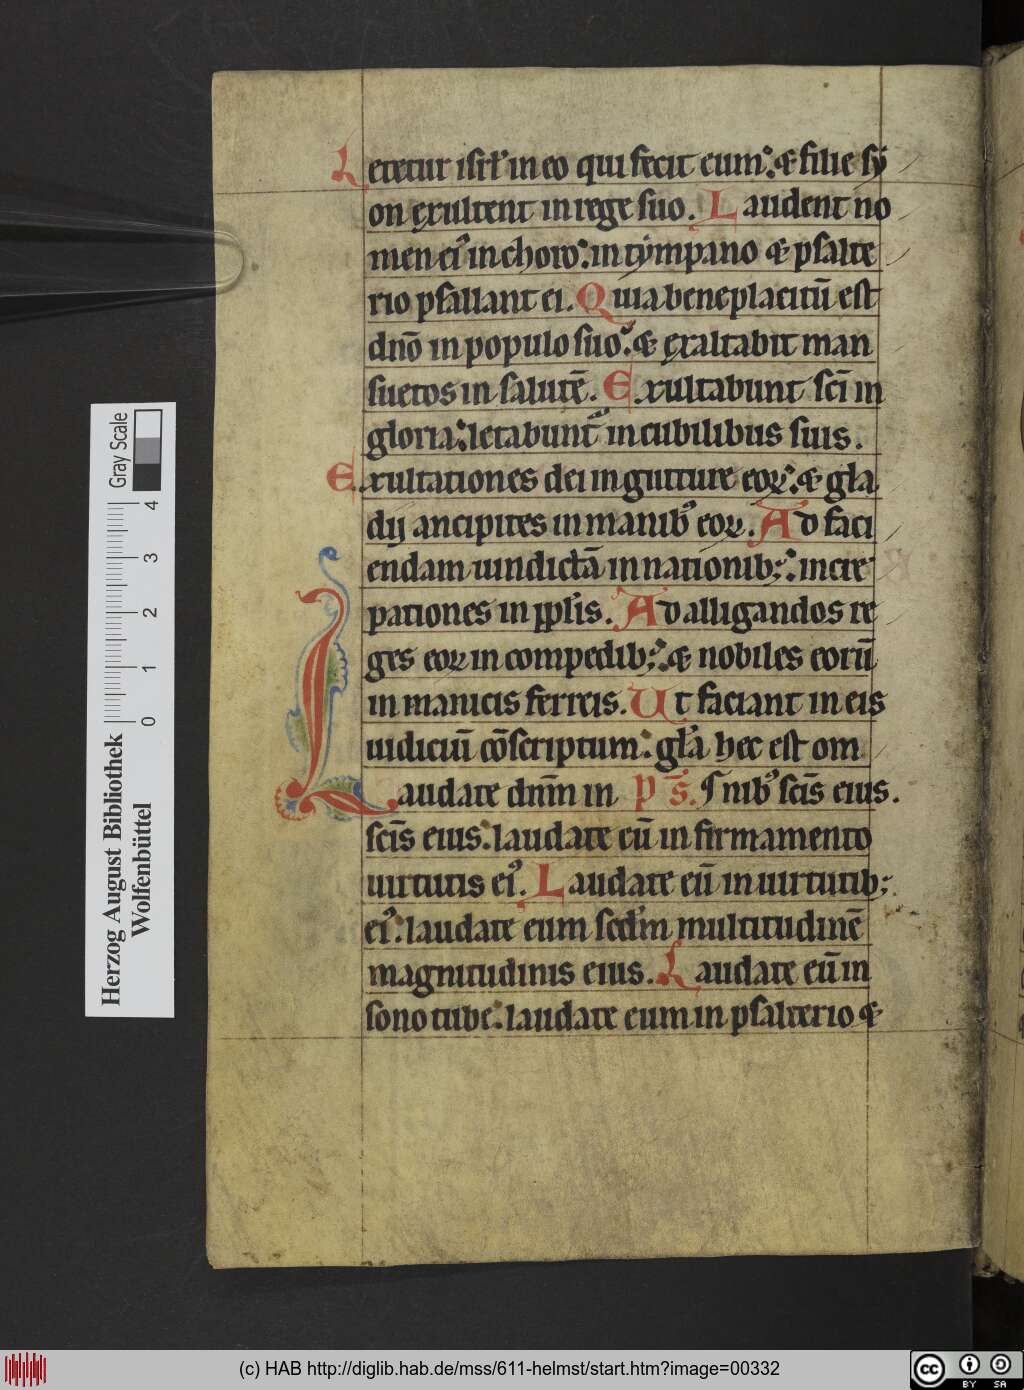 Letetur isrl̄ in eo qui fecit eum: & filie sẏ
on ęxultent in rege suo. Laudent no
men ei᷒ in choro: in tẏmpano & psalte
rio psallant ei. Quia beneplacitū est
dn̄o in populo suo: & ęxaltabit man
suetos in salutē. Exultabunt sc̄i in
gloria: letabunt᷑ in cubilibus suis.
Exultationes dei in gutture eoꝝ: & gla
dij ancipites in manib᷒ eoꝝ. Ad faci
endam uindictā in nationib;: incre
pationes in ppl̄is. Ad alligandos re
ges eoꝝ in compedib;: & nobiles eorū
in manicis ferreis. Ut faciant in eis
iudiciū cōscriptum: gl̄a hec est om
Laudate dn̄m in p̄s̄. nib᷒ sc̄is eius.
sc̄is eius: laudate eū in firmamento
uirtutis ei᷒. Laudate eū in uirtutib;
ei᷒: laudate eum sed̄m multitudinē
magnitudinis eius. Laudate eū in
sono tube: laudate eum in psalterio &
Herzog August Bibliothek
Wolfenbüttel
0 1 2 3 4
Gray Scale
(c) HAB http://diglib.hab.de/mss/611-helmst/start.htm?image=00332
cc BY SA